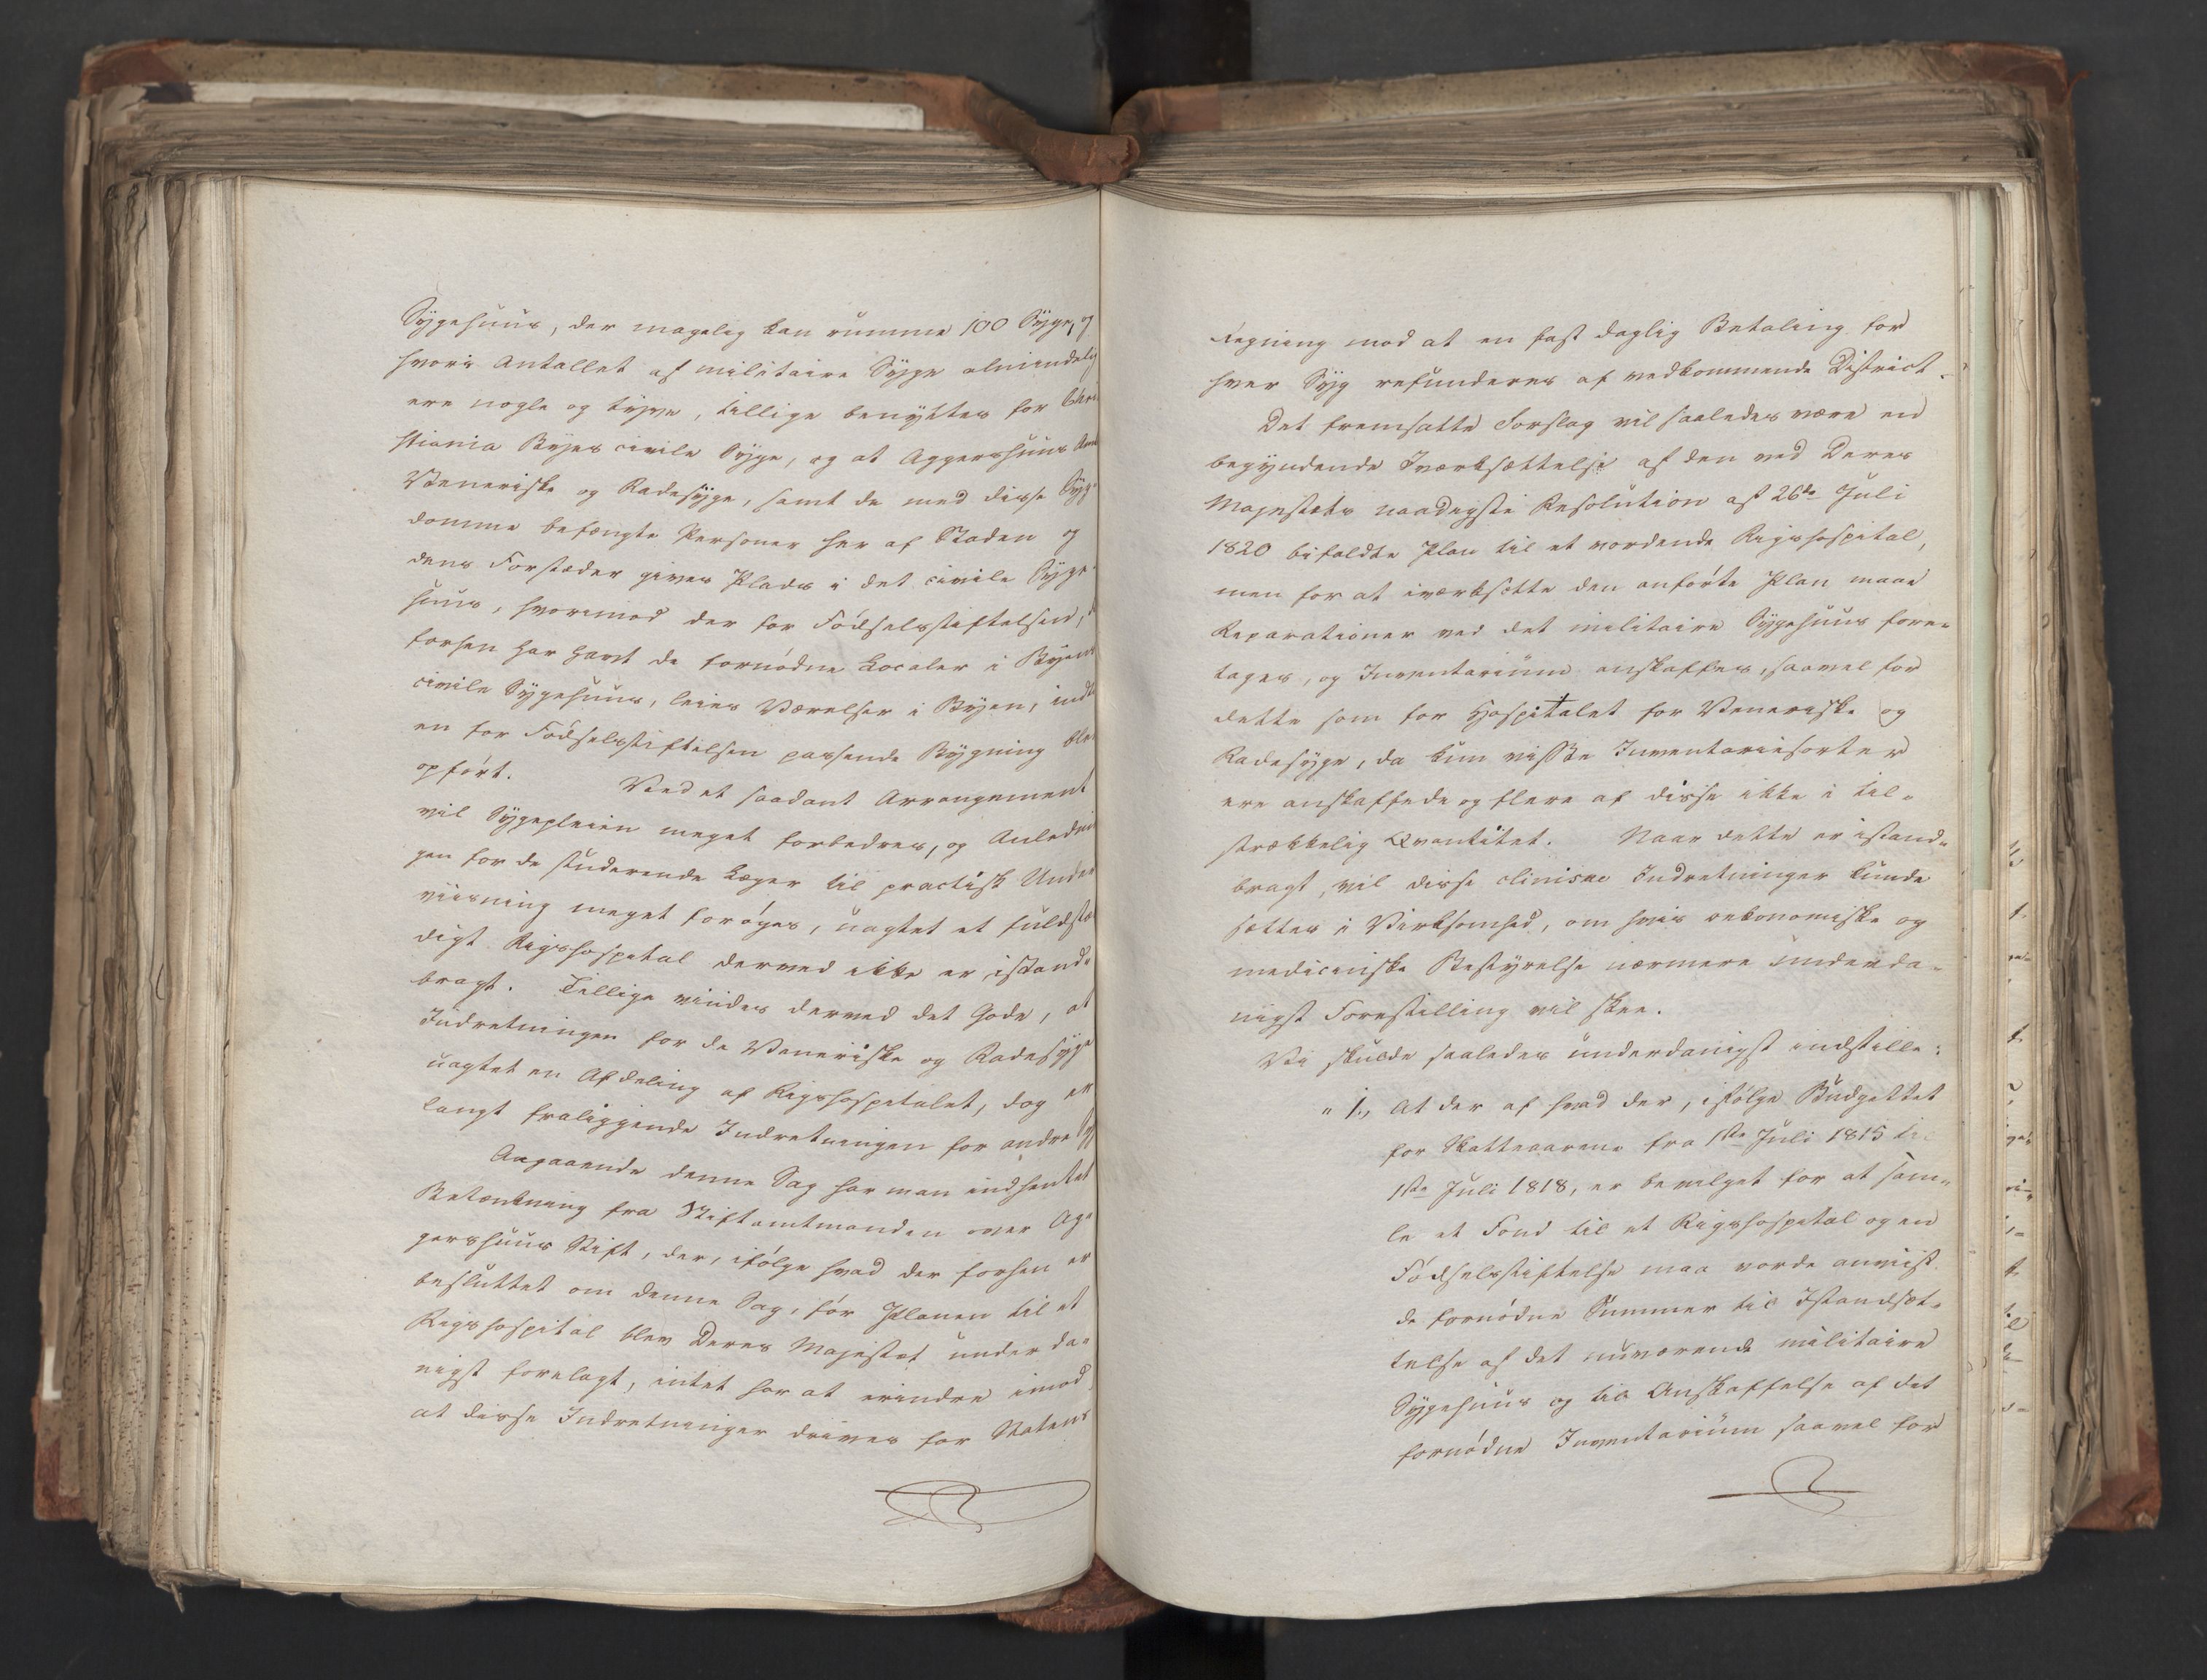 Sygehuus, der magelig kan rumme 100 Syge, og
hvori Antallet af militaire Syge almindelig
ere nogle og tyve, tillige benyttes for Chri
stiania Byes civile Syge, og at Aggershuus Amts
Veneriske og Radesyge, samt de med disse Syg-
domme befængte Personer her af Staden og
dens Forstæder gives Plads i det civile Syge-
huus, hvorimod der for Fødselsstiftelsen, der
forhen har havt de fornødne Localer i Byens
civile Sygehuus, leies Værelser i Byen, indtil
en for Fødselsstiftelsen passende Bygning blev
opført. Ved et saadant Arrangement
vil Sygepleien meget forbedres, og Anlednin
gen for de studerende Læger til practisk Under
viisning meget forøges, uagtet et fuldstæn
digt Rigshospital derved ikke er istand-
bragt. Tillige vindes derved det Gode, at
Indretningen for de Veneriske og Radesyge
uagtet en Afdeling af Rigshospitalet, dog er
langt fraliggende Indretningen for andre Syge
Angaaende denne Sag har man indhentet
Betænkning fra Stiftamtmanden over Ag-
gershuus Stift, der, ifølge hvad der forhen er
besluttet om denne Sag, før Planen til et
Rigshospital blev Deres Majestæt underda-
nigst forelagt, intet har at erindre imod,
at disse Indretninger drives for Statens
Regning mod at en fast daglig Betaling for
hver Syg refunderes af vedkommende District.
Det fremsatte Forslag vil saaledes være en
begyndende Iværksættelse af den ved Deres
Majestæts naadigste Resolution af 26de Juli
1820 bifaldte Plan til et vordende Rigshospital,
men for at iværksætte den anførte Plan maae
Reparationer ved det militaire Sygehuus fore-
tages, og Inventarium anskaffes, saavel for
dette som for Hospitalet for Veneriske og
Radesyge, da kun visse Inventariesorter
ere anskaffede og flere af disse ikke i til-
strækkelig Qvantitet. Naar dette er istand-
bragt, vil disse clinisne Indretninger kunde
sættes i Virksomhed, om hvis oekonomiske og
medicinske Bestyrelse nærmere underda-
nigst Forestilling vil skee.
Vi skulde saaledes underdanigst indstille:
" 1., At der af hvad der, ifølge Budgettet
for Skatteaarene fra 1ste Juli 1815 til
1ste Juli 1818, er bevilget for at sam-
le et Fond til et Rigshospital og en
Fødselsstiftelse maa vorde anviist
de fornødne Summer til Istandsæt-
telse af det nuværende militaire
Sygehuus og til Anskaffelse af det
fornødne Inventarium saavel for